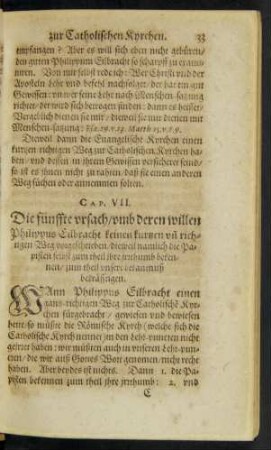 zur Catholischen Kyrchen. 33
empfangen? Aber es will sich eben nicht gebüren/
den guten Philippum Eilbracht so scharpff zu
nieren. Von mir selbst rede ich: Wer Christi vnd der
Aposteln Lehr vnd befehl nachfolget/ der hat ein gut
Gewissen: vnd wer seine Lehr nach Menschen-satzung
richtet/ der wird sich betrogen finden: dann es heisset/
Vergeblich dienen sie mir/ dieweil sie mir dienen mit
Menschen-satzung: Esa. 29. v. 13. Matth. 15. v. 8. 9.
Dieweil dann die Evangelische Kyrchen einen
kurtzen richtigen Weg zur Catholischen Kyrchen ha-
ben/ vnd dessen in ihrem Gewissen versichert seind/
so ist es ihnen nicht zu rahten/ daß sie einen anderen
Weg suchen oder annemmen solten.
CAP. VII.
Die fünffte vrsach/ vmb deren willen
Philippus Eilbracht keinen kurtzen vñ rich-
tigen Weg vorgeschrieben/ dieweil namlich die Pa-
pisten selbst zum theil ihre jrrthumb beken-
nen/ zum theil vnsere bekantnuß
bekräfftigen.
WAnn Philippus Eilbracht einen
gantz-richtigen Weg zur Catholische Kyr-
chen fürgebracht/ gewiesen vnd bewiesen
hett/ so müßte die Römische Kyrch (welche sich die
Catholische Kyrch nennet) in den Lehr-puncten nicht
geirret haben: wir müßten auch in vnseren Lehr-pun-
cten/ die wir auß Gottes Wort genomen/ nicht recht
haben. Aber beydes ist nichts. Dann 1. die Pa-
pisten bekennen zum theil ihre jrrthumb: 2. vnd
C